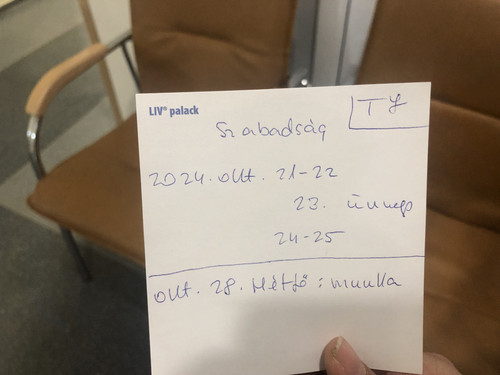 LIV® palack
T J
Szabadság
2024. okt. 21-22
23. ünnep
24-25
okt. 28. Hétfő : munka